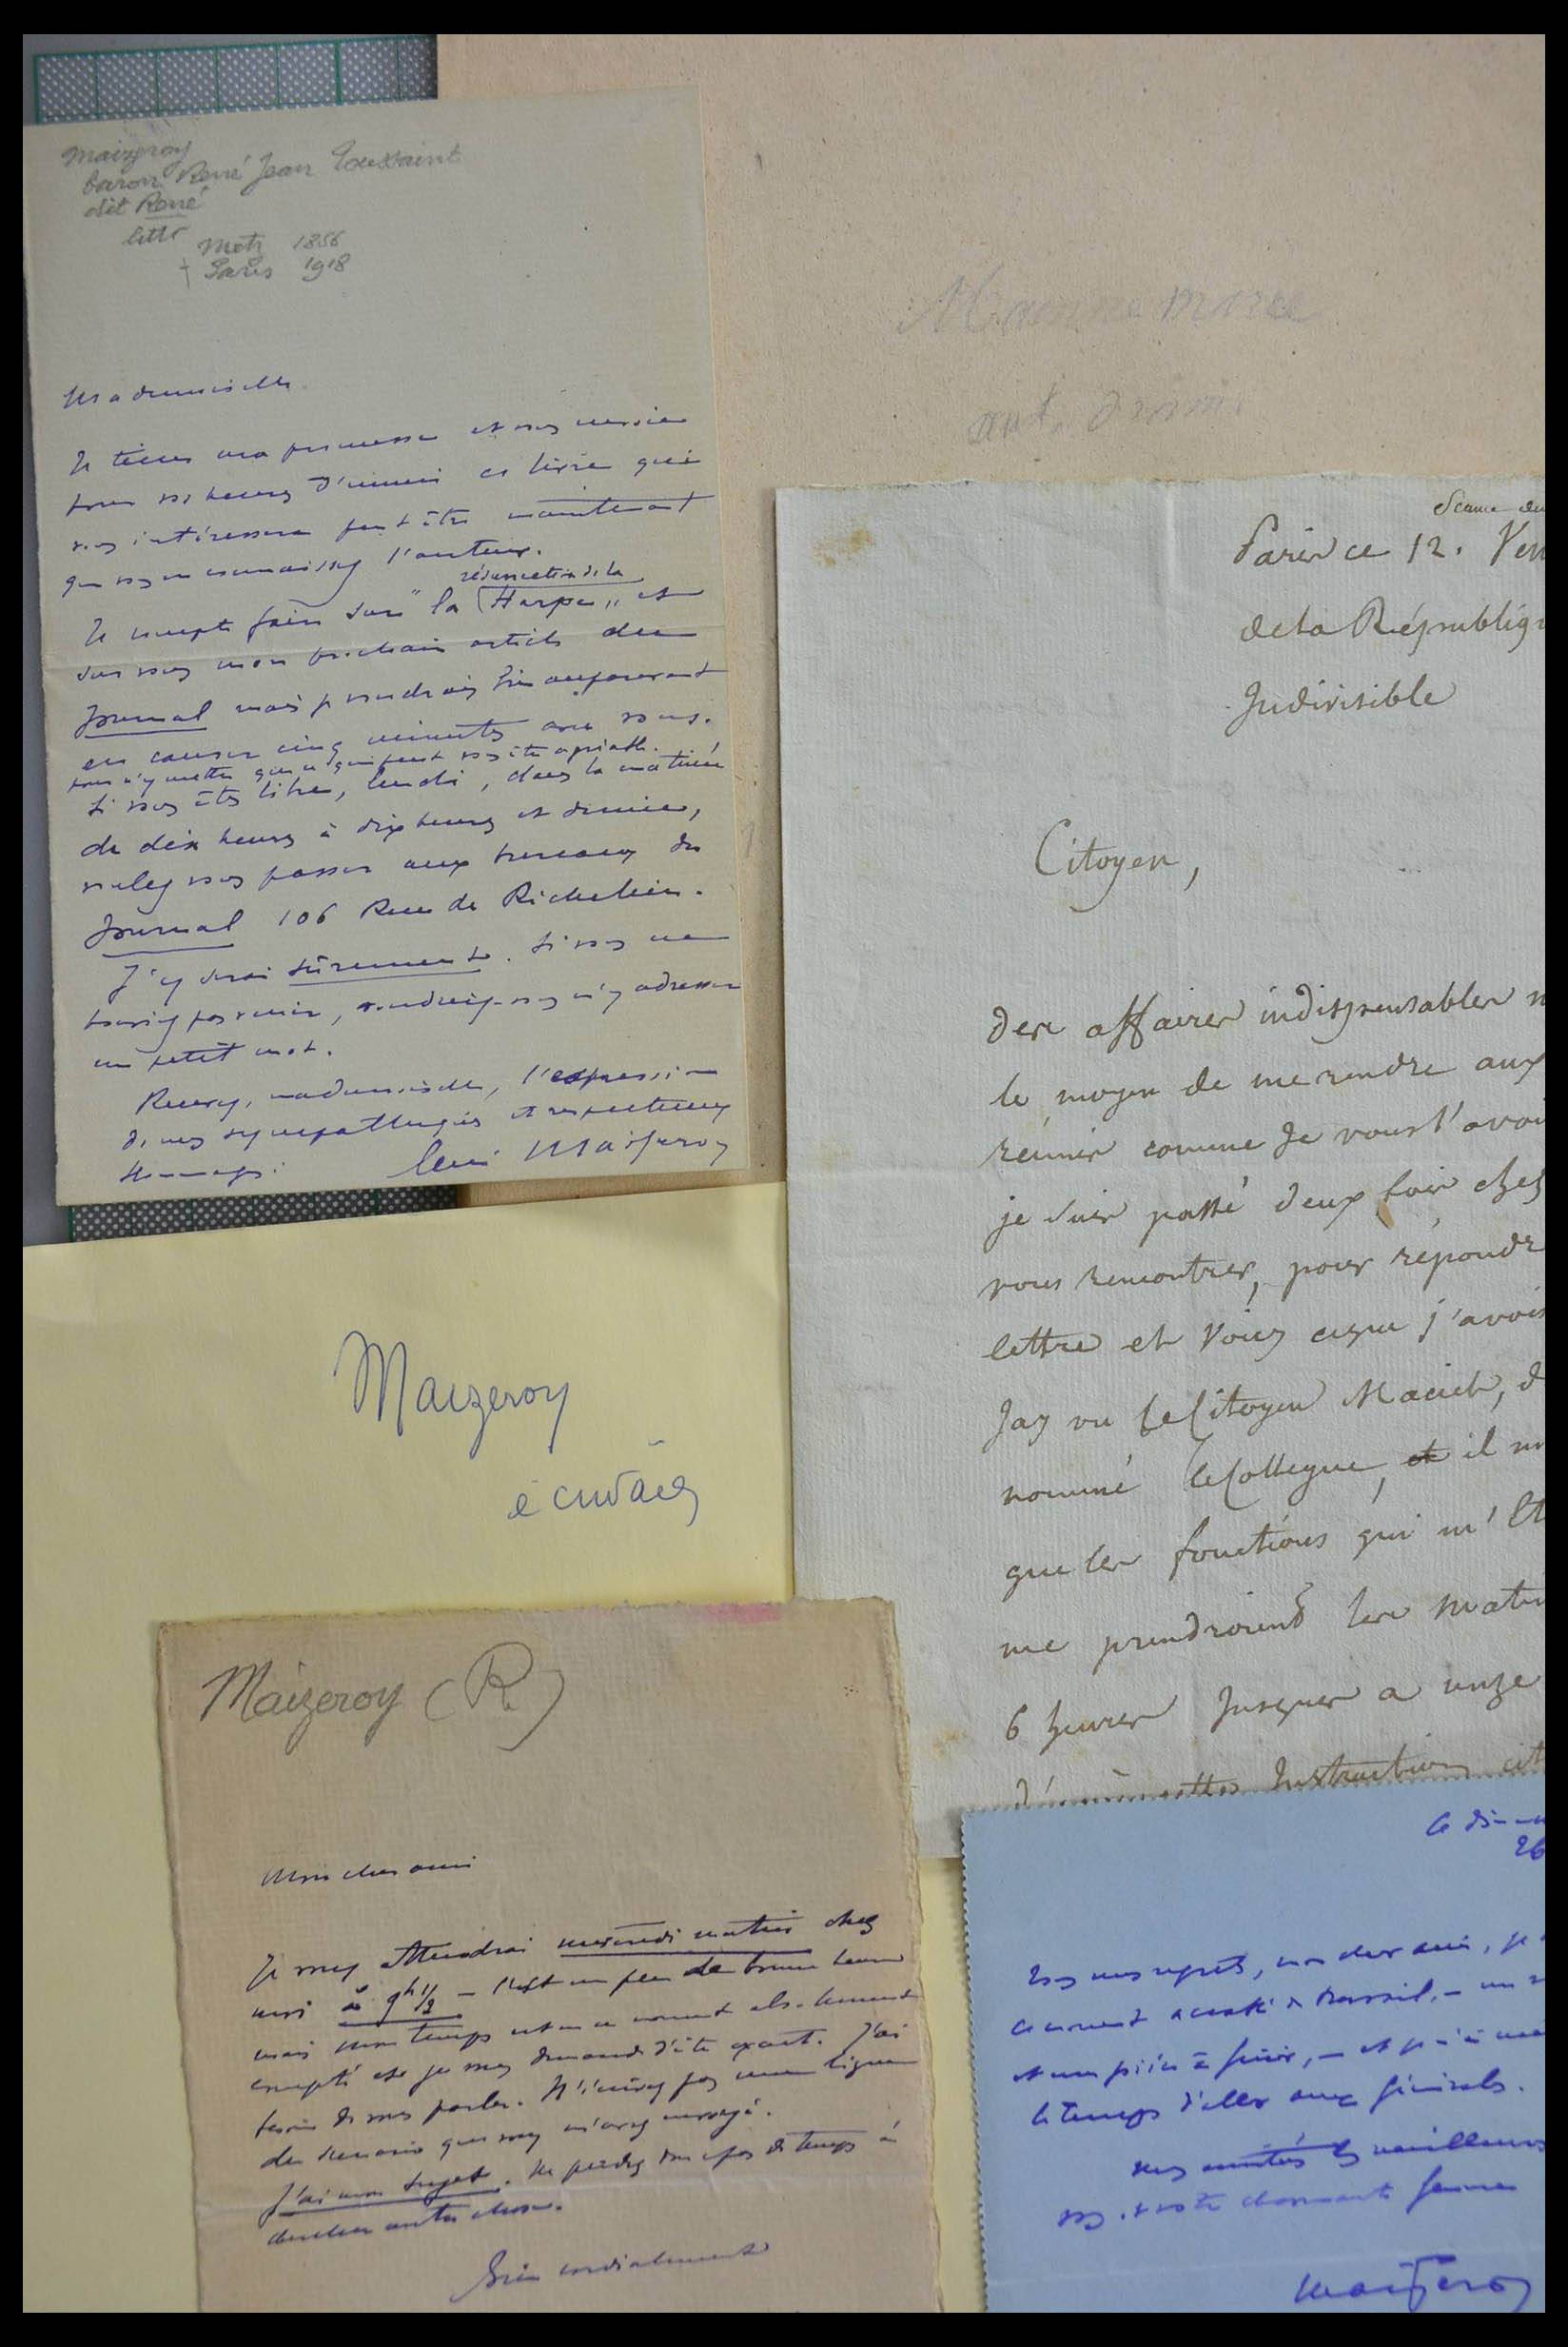 Maizeroy
baron René Jean Toussaint
dit René
littr
Metz 1856
+ Paris 1918
Mademoiselle
Je tiens ma promesse et vous envoie
pour vos heures d'ennui ce livre qui
vous intéressera peut être maintenant
que vous en connaissez l'auteur.
résurrection de la
Je compte faire sur "la Harpe" et
sur vous mon prochain article du
Journal mais voudrais bien auparavant
en causer cinq minutes avec vous.
pour n'y mettre que ce qui peut vous être agréable.
Si vous êtes libre, lundi, dans la matinée
de dix heures à dix heures et demie,
voulez vous passer aux bureaux du
Journal 106 Rue de Richelieu.
J'y serai sûrement. Si vous ne
pouviez pas venir, voudriez-vous m'y adresser
un petit mot.
Recevez, mademoiselle, l'expression
de mes sympathiques et respectueux
hommages.
René Maizeroy
Maizeroy
écrivain
Maizeroy (R)
Mon cher ami
Je vous attendrai mercredi matin chez
moi à 9h 1/2 – C'est un peu de bonne heure
mais mon temps est en ce moment absolument
compté et je vous demande d'être exact. J'ai
besoin de vous parler. N'écrivez pas une ligne
du scenario que vous m'avez envoyé.
J'ai mon sujet. Ne perdez donc pas de temps à
chercher autre chose.
Bien cordialement
aut. dram.
Séance du
Paris ce 12. Ven
de la Républiq
Indivisible
Citoyen,
Des affaires indispensables m
le moyen de me rendre aux
réunir comme Je vous l'avoi
je suis passé deux fois chez
vous rencontrer, pour répondr
lettre et Voicy ceque j'avois
Jay vu Le Citoyen d
nommé le Collegue, et il m
que les fonctions qui m'
me prendroient les Matin
6 heures Jusques a unze
Instruction cit
Le dim
26
Tous mes regrets, mon cher ami, je
ce moment accablé de travail, – un
et une pièce à finir, – et je n'ai
le temps d'aller aux générales.
mes amitiés les meilleures
votre charmante femme
Maizeroy